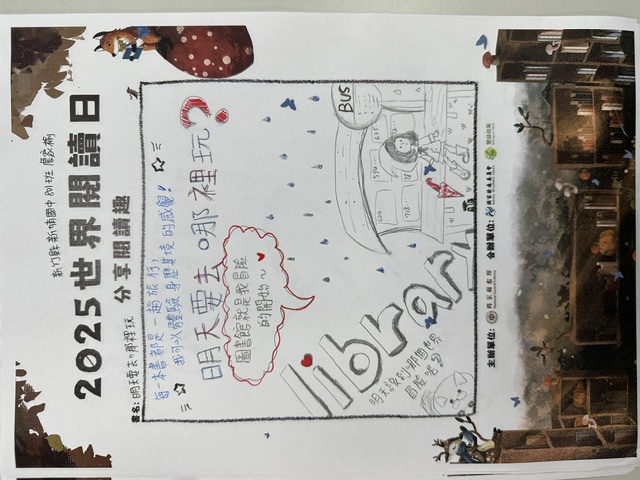 新竹縣 新埔國中 801班
2025世界閱讀日
分享閱讀趣
書名: 明天要去哪裡玩
每一本書都是一趟旅行,
我可以體驗身歷其境的感覺!
明天要去哪裡玩?
圖書館就是我冒險
的開始~
BUS
library
主辦單位:
國家圖書館
合辦單位: